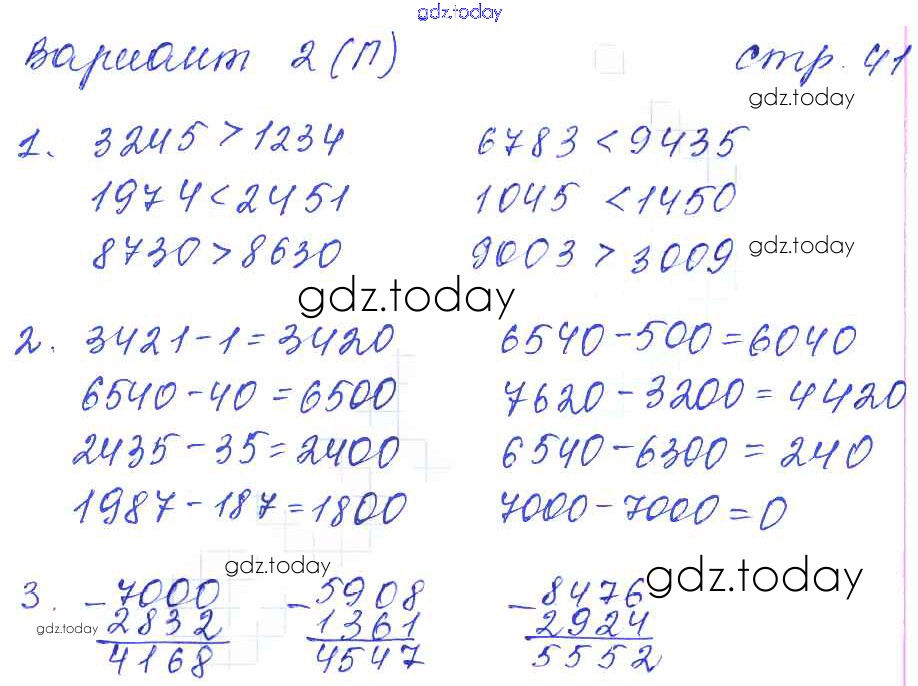 gdz.today
Вариант 2 (П) стр. 41
gdz.today
1. 3245 > 1234 6783 < 9435
1974 < 2451 1045 < 1450
8730 > 8630 9003 > 3009 gdz.today
gdz.today
2. 3421 - 1 = 3420 6540 - 500 = 6040
6540 - 40 = 6500 7620 - 3200 = 4420
2435 - 35 = 2400 6540 - 6300 = 240
1987 - 187 = 1800 7000 - 7000 = 0
gdz.today gdz.today
3. - 7000 - 5908 - 8476
gdz.today 2832 1361 2924
4168 4547 5552